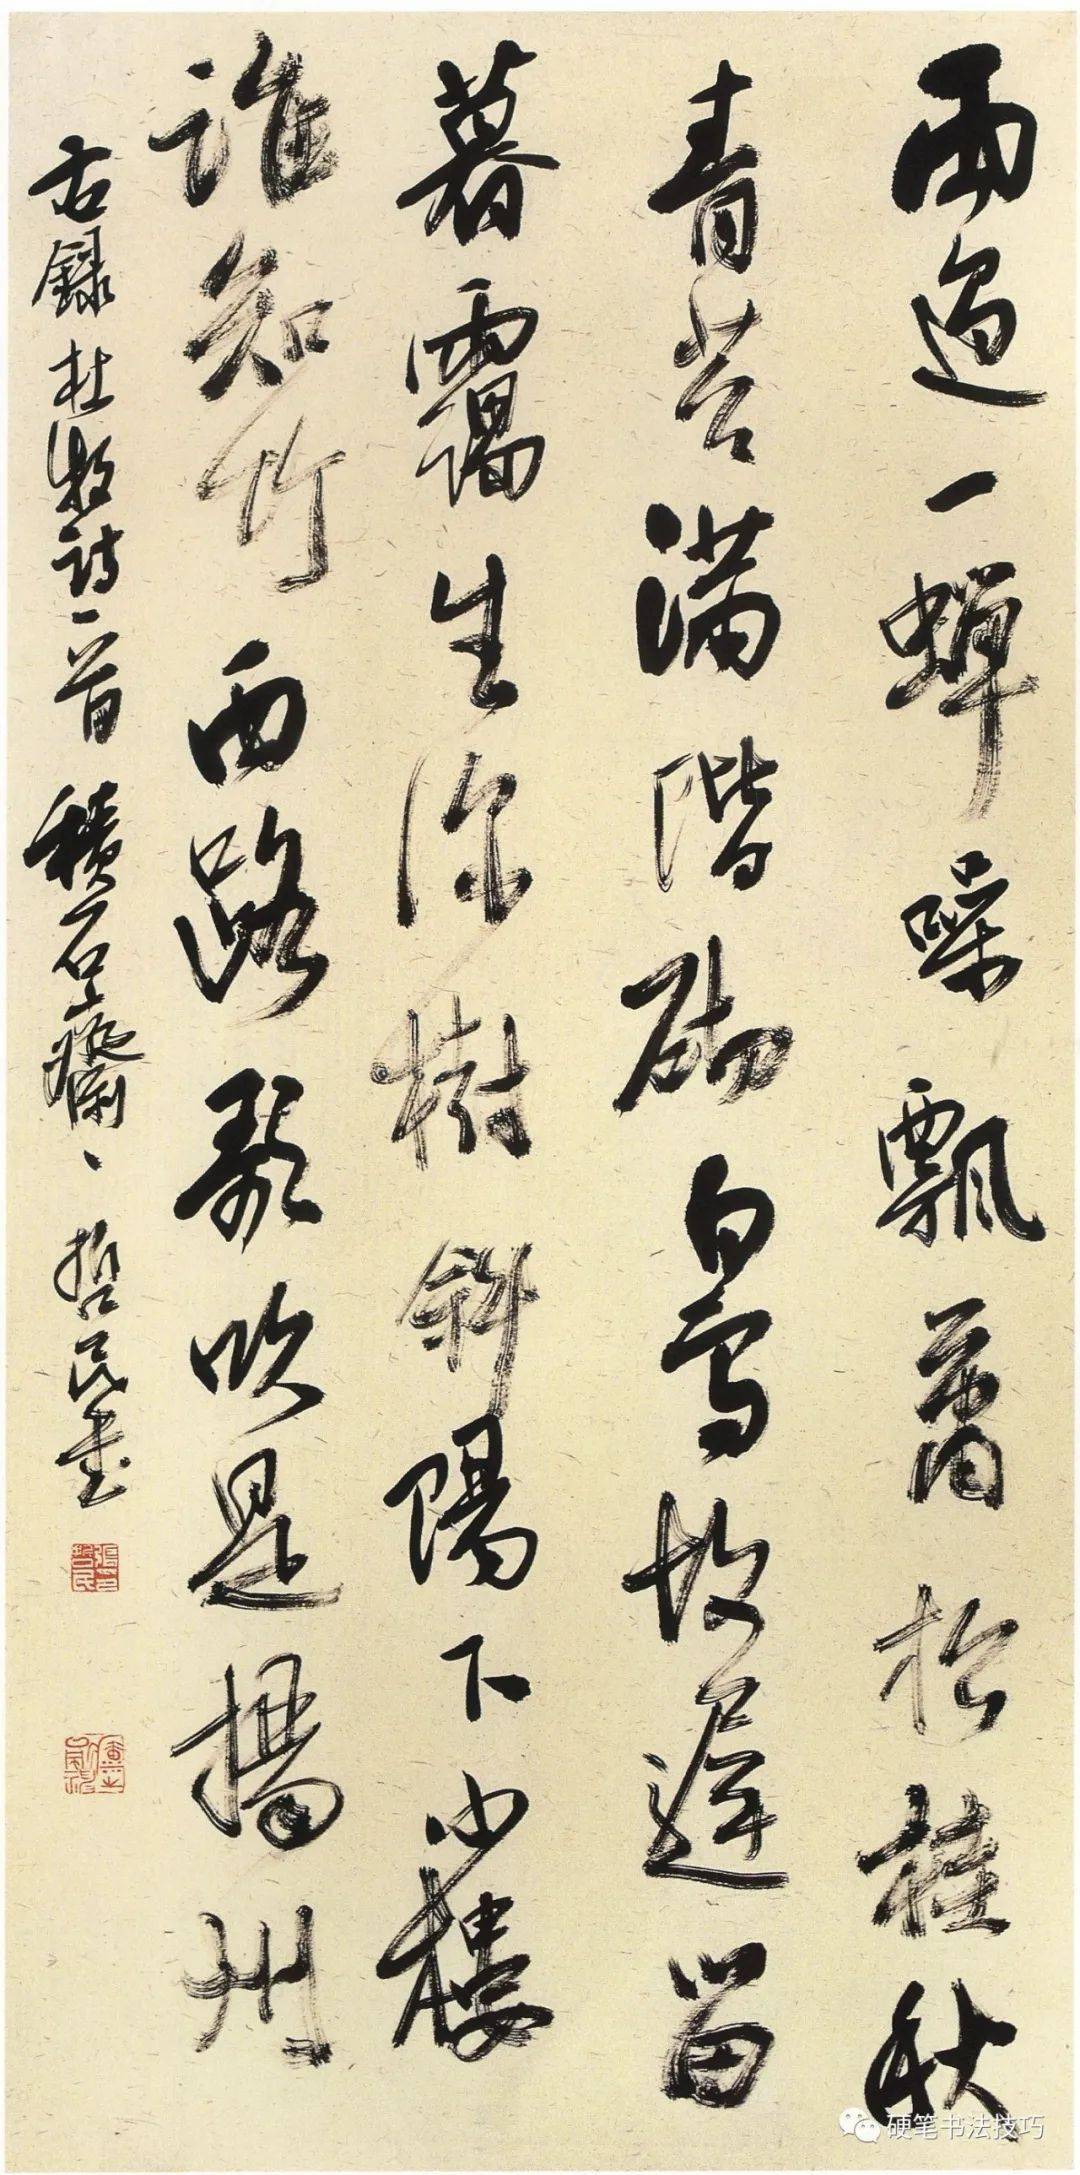 雨過一蟬噪飄蕭松桂秋
青苔滿階砌白鳥故遲留
暮靄生深樹斜陽下小樓
誰知竹西路歌吹是揚州
右錄杜牧詩一首積石齋哲民書
硬笔书法技巧